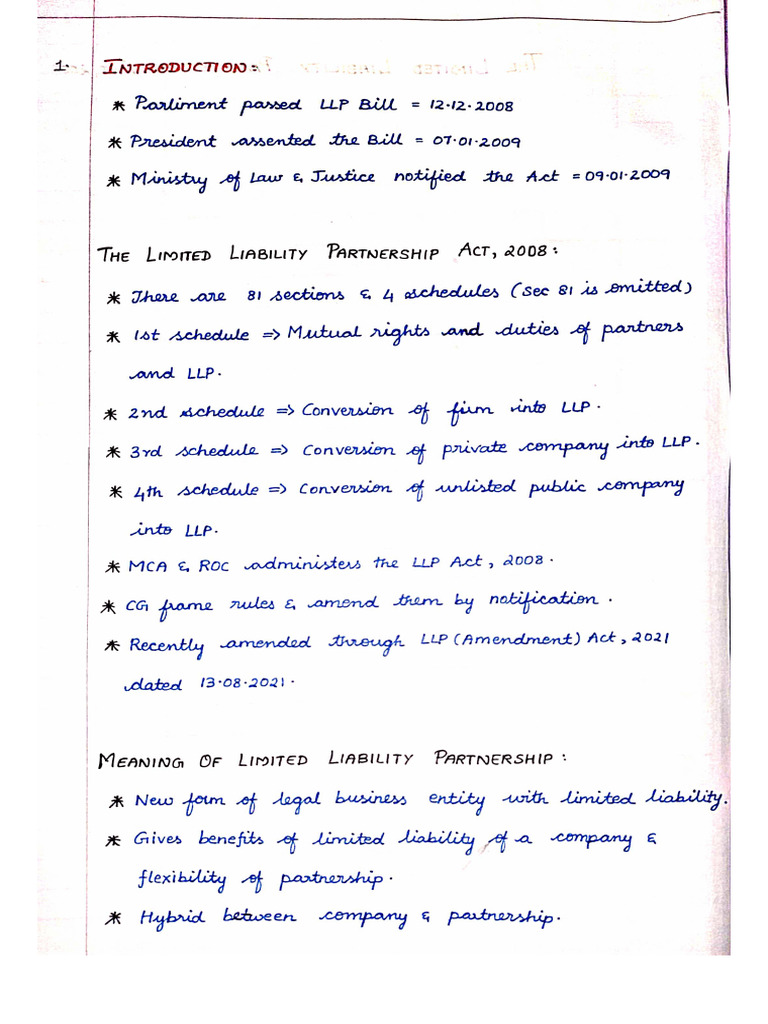 1. INTRODUCTION:
* Parliment passed LLP Bill = 12.12.2008
* President assented the Bill = 07.01.2009
* Ministry of Law & Justice notified the Act = 09.01.2009
THE LIMITED LIABILITY PARTNERSHIP ACT, 2008:
* There are 81 sections & 4 schedules (Sec 81 is omitted)
* 1st schedule => Mutual rights and duties of partners
and LLP.
* 2nd schedule => Conversion of firm into LLP.
* 3rd schedule => Conversion of private company into LLP.
* 4th schedule => Conversion of unlisted public company
into LLP.
* MCA & ROC administers the LLP Act, 2008.
* CG frame rules & amend them by notification.
* Recently amended through LLP (Amendment) Act, 2021
dated 13.08.2021.
MEANING OF LIMITED LIABILITY PARTNERSHIP:
* New form of legal business entity with limited liability.
* Gives benefits of limited liability of a company &
flexibility of partnership.
* Hybrid between company & partnership.